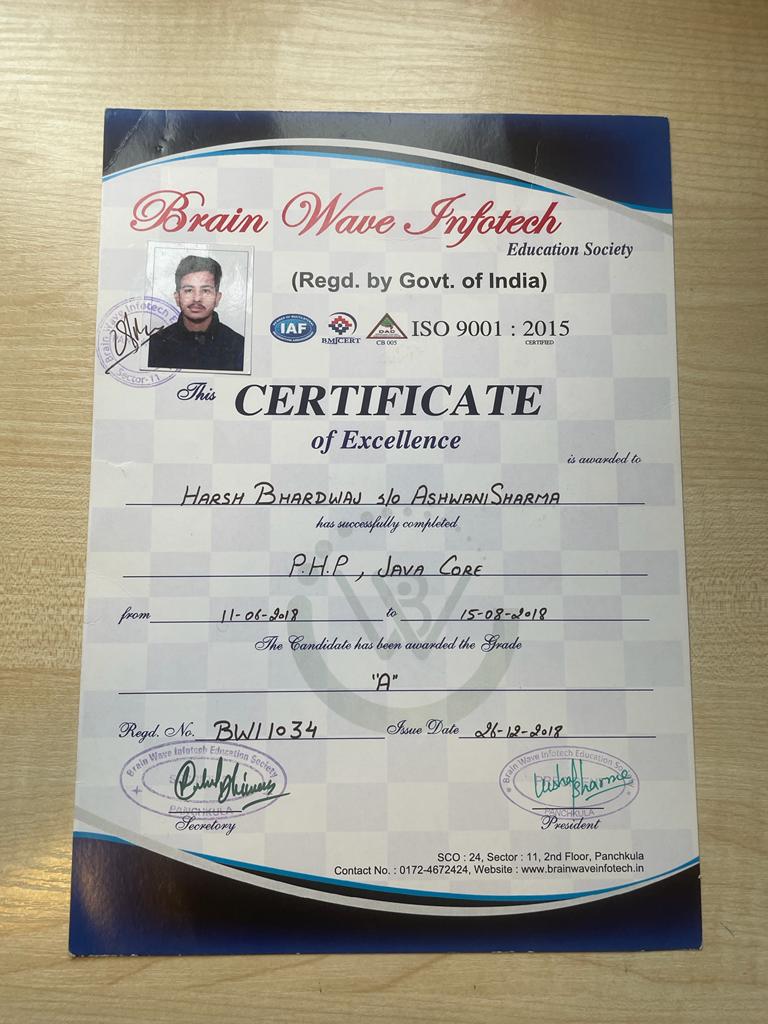 Brain Wave Infotech
Education Society
(Regd. by Govt. of India)
IAF
BMJCERT
DAC
CB 005
ISO 9001 : 2015
CERTIFIED
Brain Wave Infotech
Sector-11
This CERTIFICATE
of Excellence
is awarded to
HARSH BHARDWAJ s/o ASHWANI SHARMA
has successfully completed
P.H.P, JAVA CORE
from 11-06-2018 to 15-08-2018
The Candidate has been awarded the Grade
"A"
Regd. No. BWI1034 Issue Date 26-12-2018
Brain Wave Infotech Education Society
PANCHKULA
Secretary
Brain Wave Infotech Education Society
PANCHKULA
President
SCO : 24, Sector : 11, 2nd Floor, Panchkula
Contact No. : 0172-4672424, Website : www.brainwaveinfotech.in